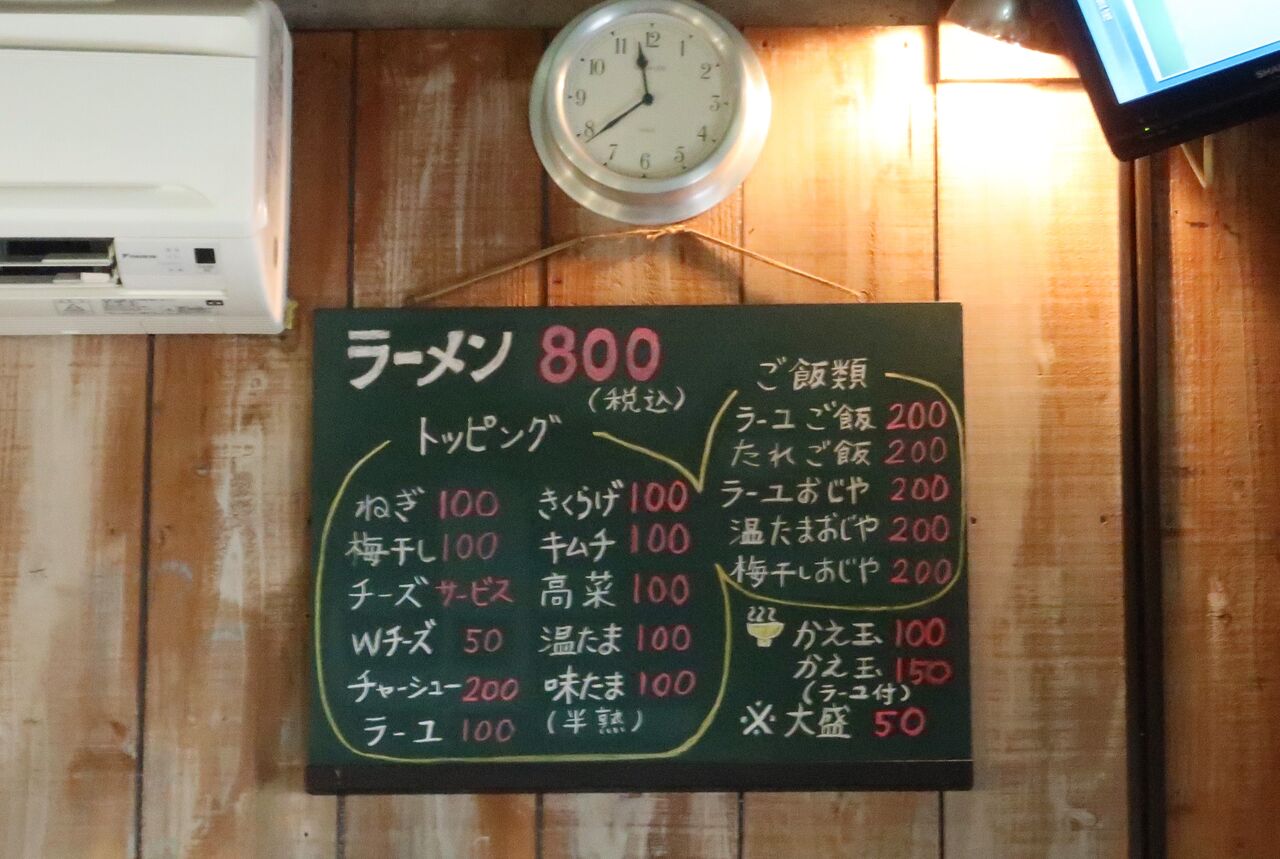 12
1
2
3
4
5
6
7
8
9
10
11
DAIKIN
SHARP
ラーメン 800
(税込)
トッピング
ねぎ 100
梅干し 100
チーズ サービス
Wチーズ 50
チャーシュー 200
ラーユ 100
きくらげ 100
キムチ 100
高菜 100
温たま 100
味たま 100
(半熟)
ご飯類
ラーユご飯 200
たれご飯 200
ラーユおじや 200
温たまおじや 200
梅干しおじや 200
かえ玉 100
かえ玉 150
(ラーユ付)
※大盛 50